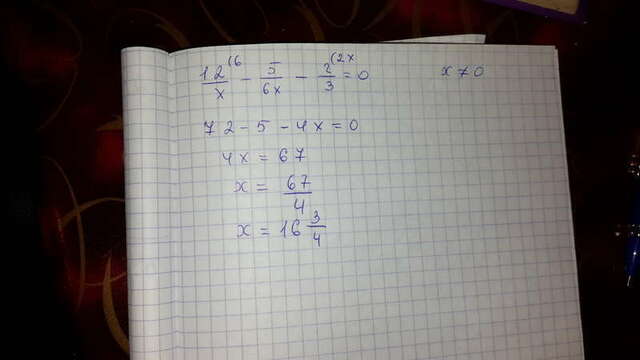 12/x (6 - 5/6x - 2/3 (2x = 0 x ≠ 0
72 - 5 - 4x = 0
4x = 67
x = 67/4
x = 16 3/4